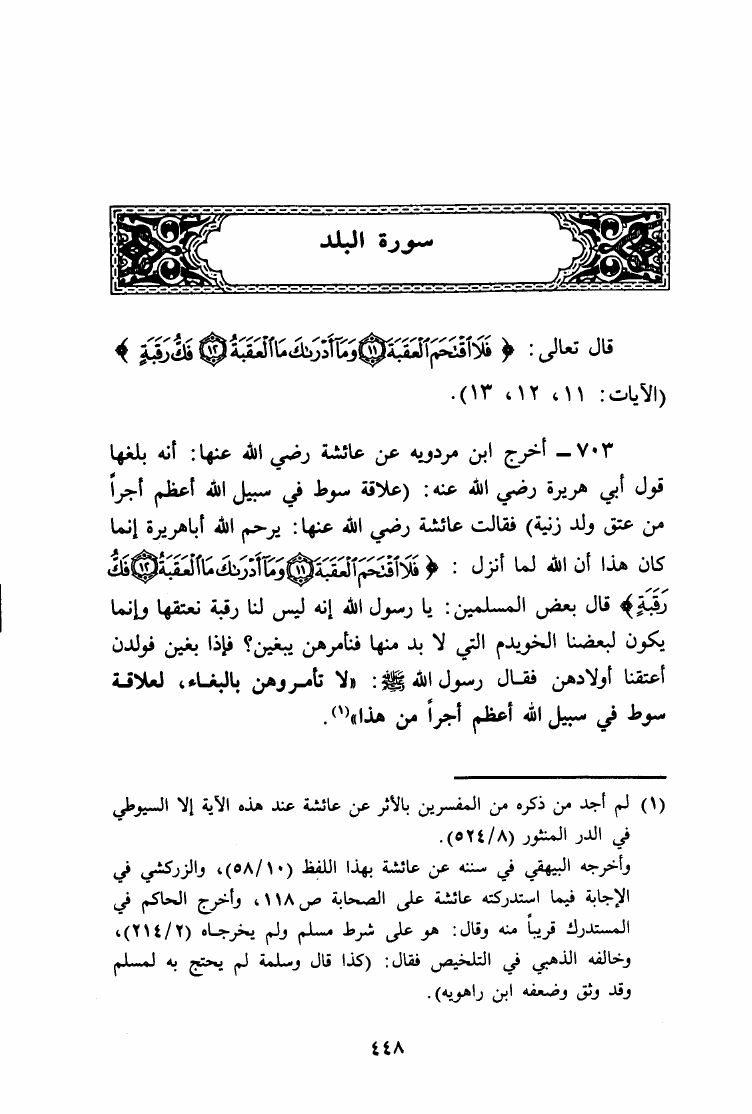 سورة البلد
قال تعالى: ﴿ فَلَا ٱقْتَحَمَ ٱلْعَقَبَةَ ١١ وَمَآ أَدْرَىٰكَ مَا ٱلْعَقَبَةُ ١٢ فَكُّ رَقَبَةٍ ﴾
(الآيات: ١١، ١٢، ١٣).
٧٠٣ ـ أخرج ابن مردويه عن عائشة رضي الله عنها: أنه بلغها
قول أبي هريرة رضي الله عنه: (علاقة سوط في سبيل الله أعظم أجراً
من عتق ولد زنية) فقالت عائشة رضي الله عنها: يرحم الله أباهريرة إنما
كان هذا أن الله لما أنزل : ﴿ فَلَا ٱقْتَحَمَ ٱلْعَقَبَةَ ١١ وَمَآ أَدْرَىٰكَ مَا ٱلْعَقَبَةُ ١٢ فَكُّ
رَقَبَةٍ﴾ قال بعض المسلمين: يا رسول الله إنه ليس لنا رقبة نعتقها وإنما
يكون لبعضنا الخويدم التي لا بد منها فنأمرهن يبغين؟ فإذا بغين فولدن
أعتقنا أولادهن فقـال رسول الله ﷺ: «لا تأمـروهن بالبغـاء، لعلاقـة
سوط في سبيل الله أعظم أجراً من هذا»(١).
(١) لم أجد من ذكره من المفسرين بالأثر عن عائشة عند هذه الآية إلا السيوطي
في الدر المنثور (٥٢٤/٨).
وأخرجه البيهقي في سننه عن عائشة بهذا اللفظ (٥٨/١٠)، والزركشي في
الإجابة فيما استدركته عائشة على الصحابة ص١١٨، وأخرج الحاكم في
المستدرك قريباً منه وقال: هو على شرط مسلم ولم يخرجـاه (٢١٤/٢)،
وخالفه الذهبي في التلخيص فقال: (كذا قال وسلمة لم يحتج به لمسلم
وقد وثق وضعفه ابن راهويه).
٤٤٨